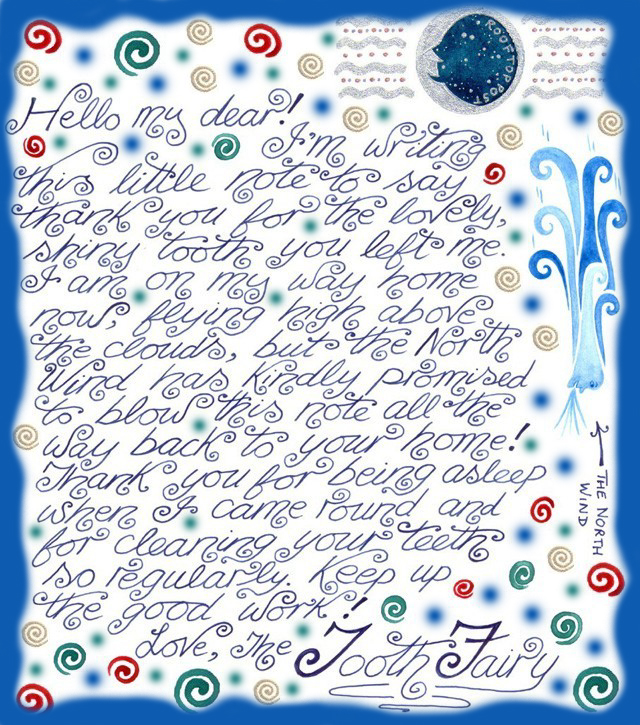 ROOFTOP POST
Hello my dear!
I'm writing
this little note to say
thank you for the lovely,
shiny tooth you left me.
I am on my way home
now, flying high above
the clouds, but the North
Wind has kindly promised
to blow this note all the
way back to your home!
Thank you for being asleep
when I came round and
for cleaning your teeth
so regularly. Keep up
the good work!
Love, The Tooth Fairy
THE NORTH
WIND